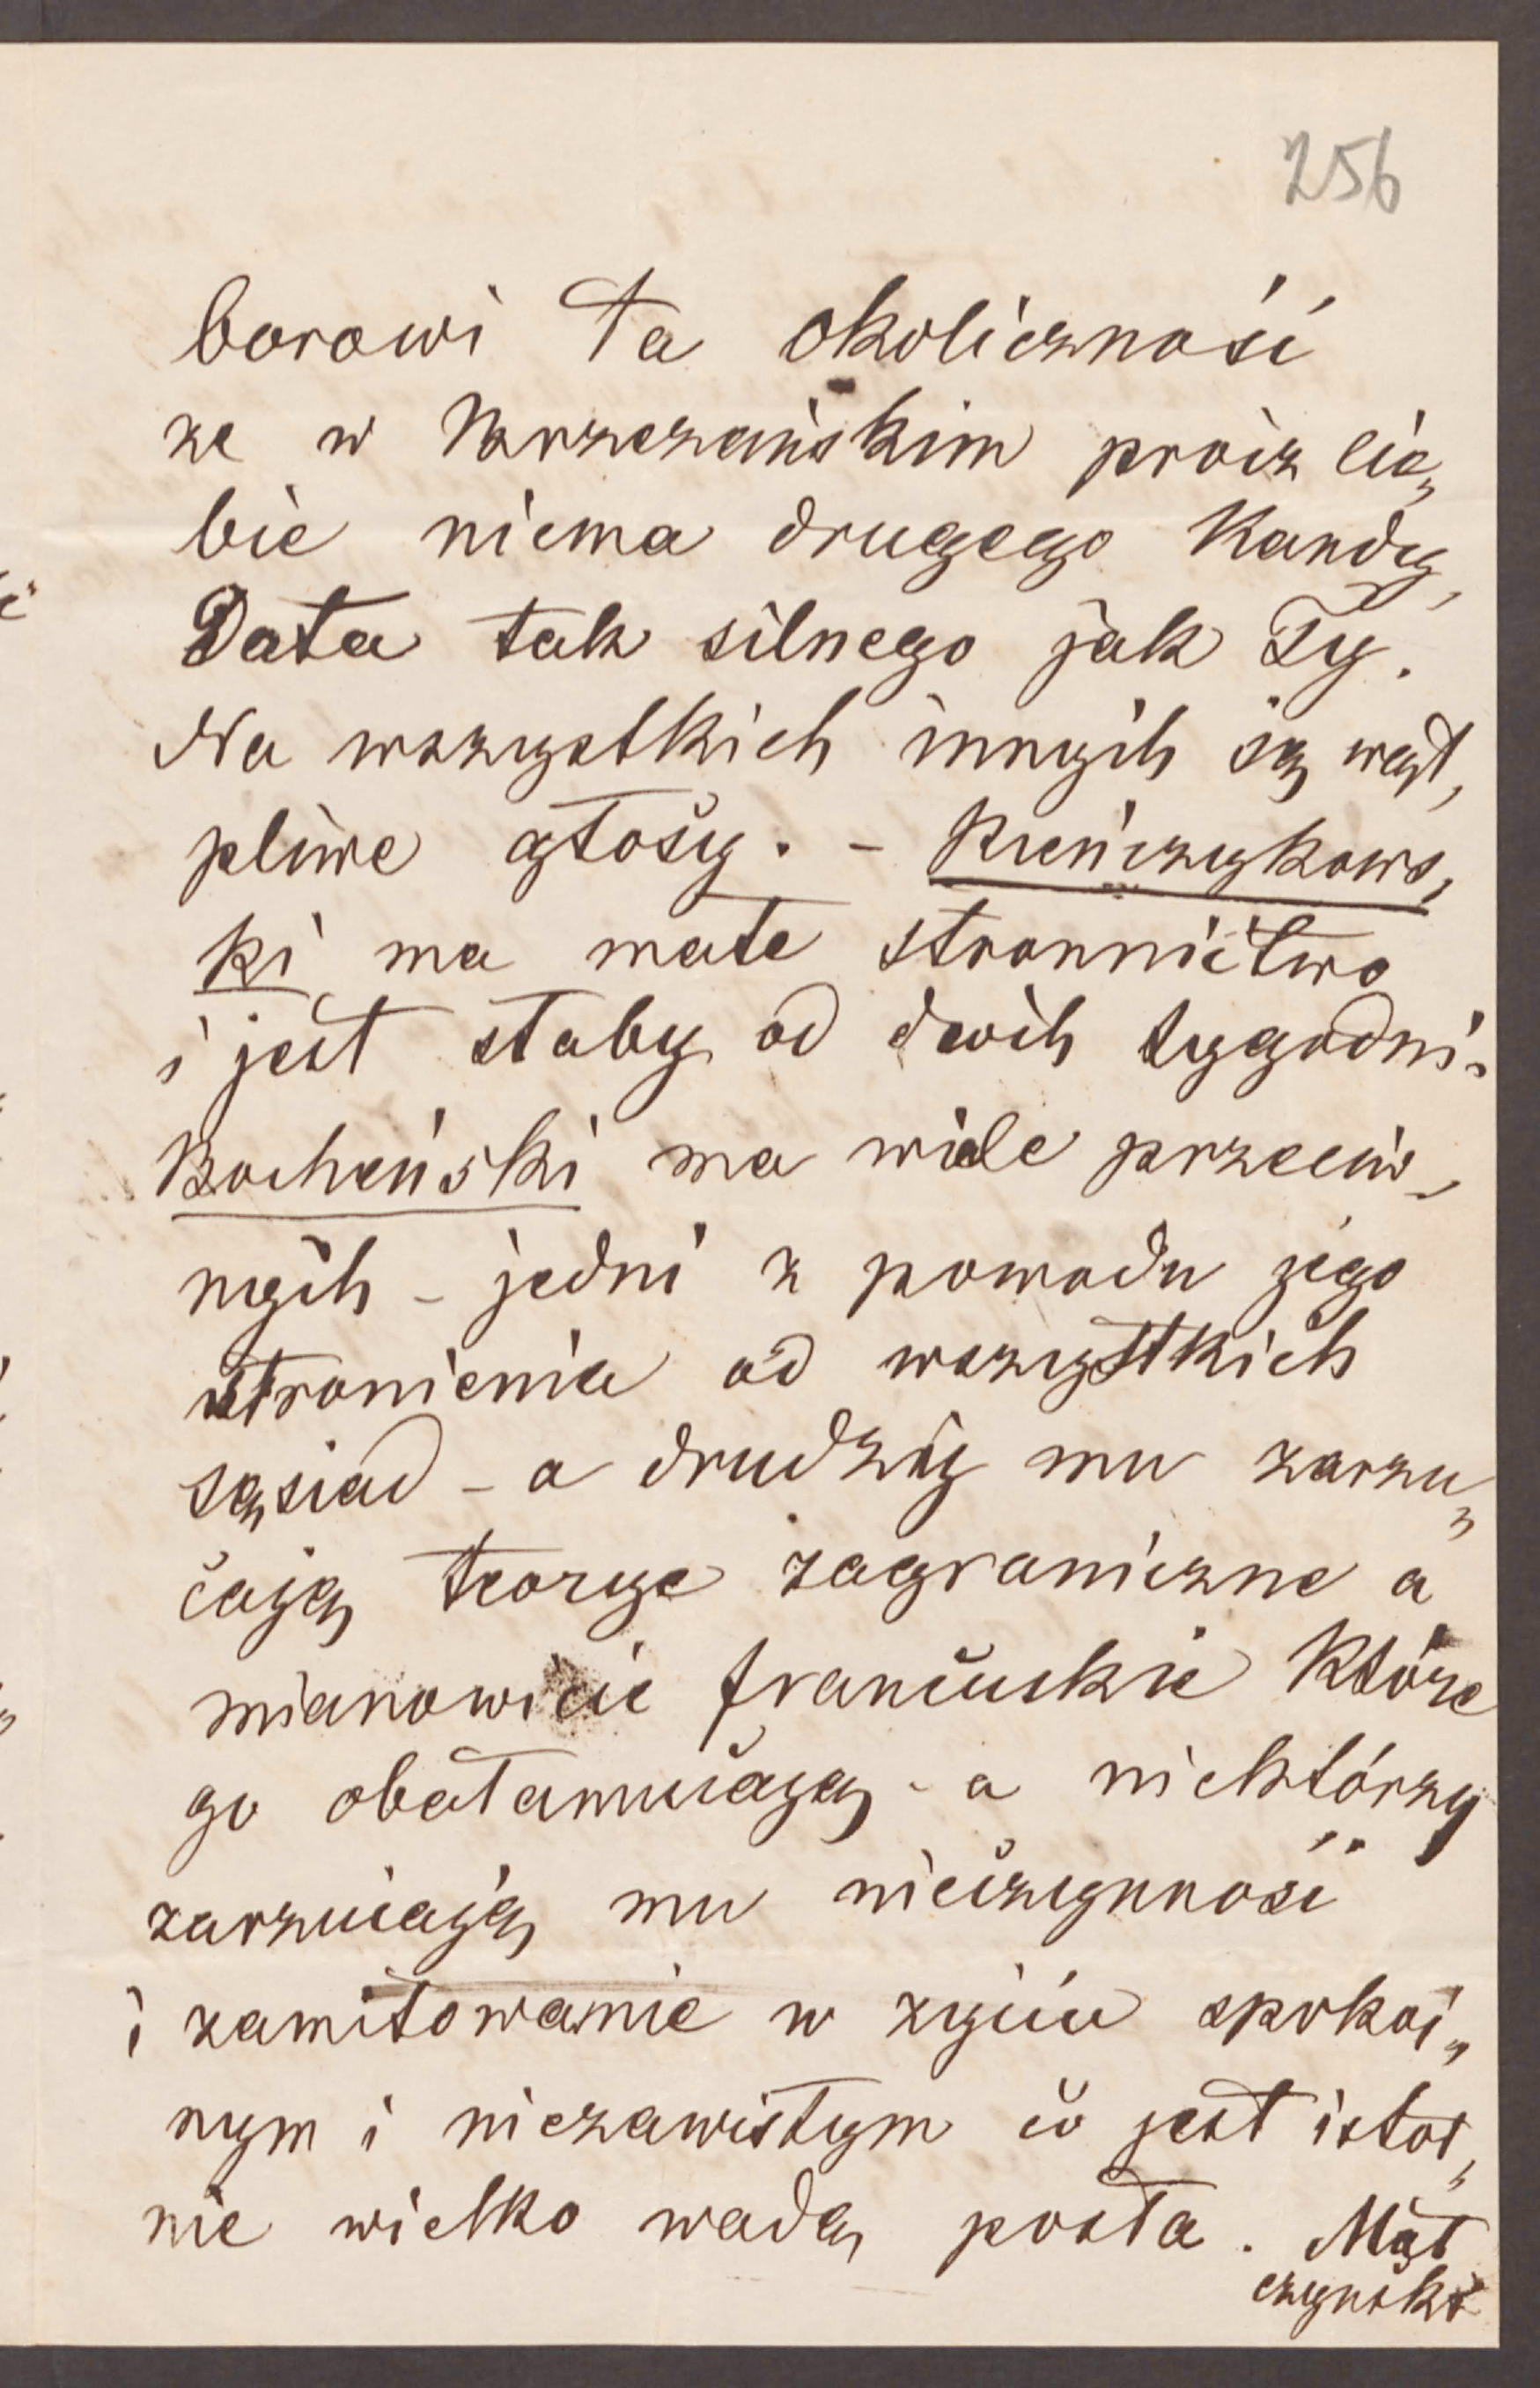 256
borowi ta okoliczność
ze w Brzeżańskim prócz cie„
bie niema drugego Kandy„
Data tak silnego jak Ty.
Na wszystkich innych są wąt„
pliwe głosy. - Kieńczykows„
ki ma małe stronnictwo
i jest słaby od dwóch tygodni.
Bocheński ma wiele przeciw„
nych - jedni z powodu jego
stronienia od wszystkich
sąsiad - a drudzy mu zarzu„
cają teorye zagraniczne a
mianowicie francuskie Które
go obałamucają - a niektórzy
zarzucają mu nieczynność
i zamiłowanie w życiu spokoi„
nym i niezawisłym co jest istot„
nie wielko wadą posła. Mał
czynski